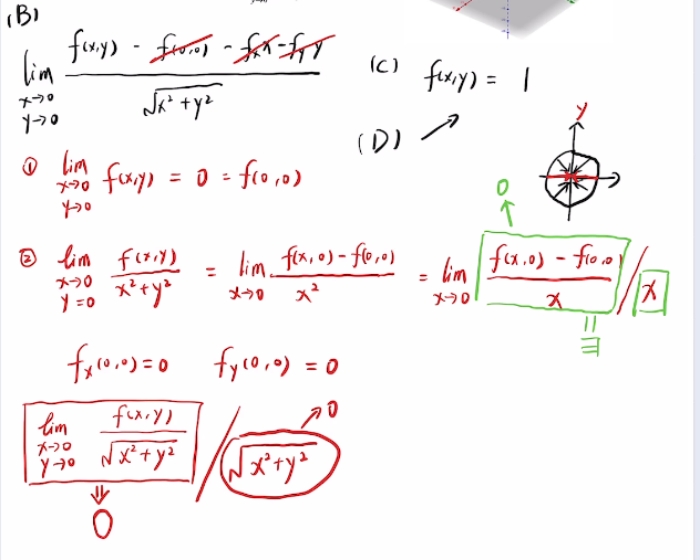 (B)
lim x→0 y→0 (f(x,y) - f(0,0) - fₓx - f_y y) / √(x²+y²)
(C) f(x,y) = 1
(D)
y
① lim x→0 y→0 f(x,y) = 0 = f(0,0)
0
② lim x→0 y=0 f(x,y) / (x²+y²) = lim x→0 (f(x,0) - f(0,0)) / x² = lim x→0 (f(x,0) - f(0,0)) / x / x
fₓ(0,0) = 0 f_y(0,0) = 0
lim x→0 y→0 f(x,y) / √(x²+y²) / √(x²+y²) → 0
⇓
0